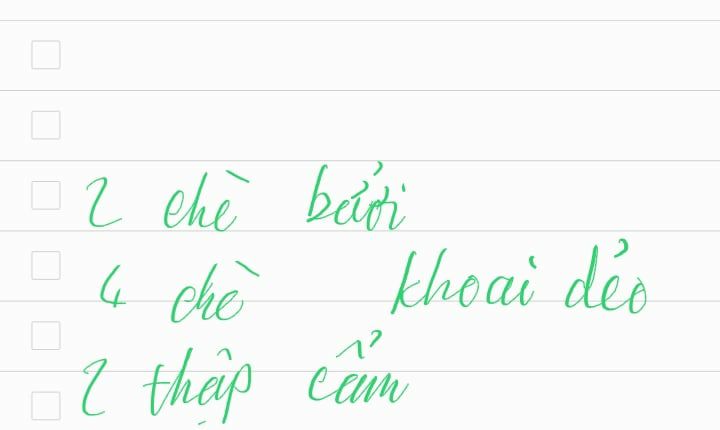 2 chè bưởi
4 chè khoai dẻo
2 thập cẩm